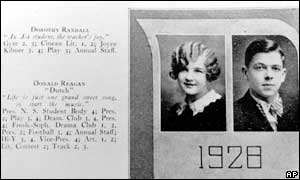 DOROTHY RANDALL
"Is A-1 student, the teacher's joy."
Gym 2, 3; Cicean Lit. 1, 2; Joyce
Kilmer 3, 4; Play 3; Annual Staff.
DONALD REAGAN
"Dutch"
"Life is just one grand sweet song,
so start the music."
Pres. N. S. Student Body 4; Pres.
2; Play 3, 4; Dram. Club 3, 4, Pres.
4; Fresh.-Soph. Drama Club 1, 2,
Pres. 2; Football 3, 4; Annual Staff;
Hi-Y 3, 4, Vice-Pres. 4; Art. 1, 2;
Lit. Contest 2; Track 2, 3.
1928
AP